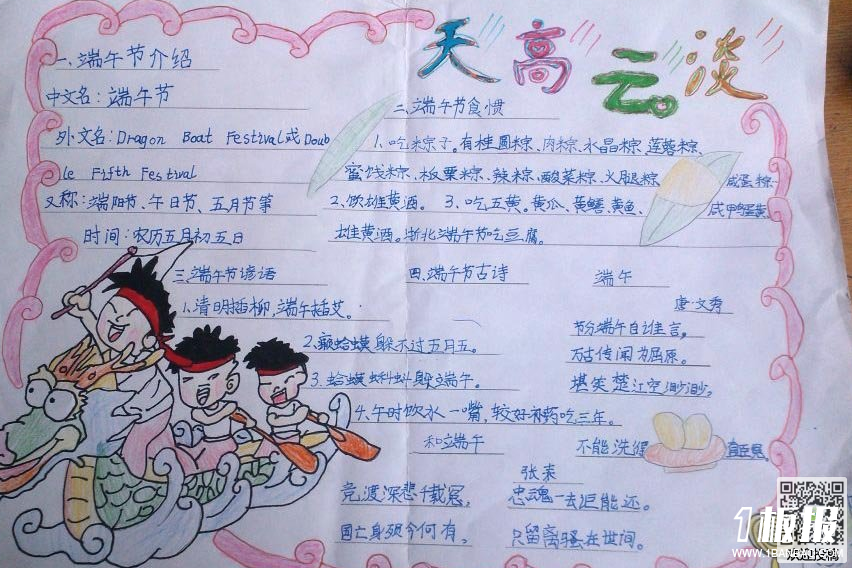 天高云淡
一、端午节介绍
中文名：端午节
外文名：Dragon Boat Festival或Doub
le Fifth Festival
又称：端阳节、午日节、五月节等
时间：农历五月初五日
二、端午节食惯
1、吃粽子。有桂圆粽、肉粽、水晶粽、莲蓉粽、
蜜饯粽、板栗粽、辣粽、酸菜粽、火腿粽、咸蛋粽
2、饮雄黄酒。3、吃五黄。黄瓜、黄鳝、黄鱼、咸鸭蛋黄、
雄黄酒。浙北端午节吃豆腐。
三、端午节谚语
1、清明插柳，端午插艾。
2、癞蛤蟆躲不过五月五。
3、蛤蟆蝌蚪躲端午。
4、午时饮水一嘴，较好补药吃三年。
四、端午节古诗
端午
唐·文秀
节分端午自谁言，
万古传闻为屈原。
堪笑楚江空渺渺，
不能洗得直臣冤。
和端午
张耒
竞渡深悲千载冤，
忠魂一去讵能还。
国亡身殒今何有，
只留离骚在世间。
1板报
WWW.1BANBAO.COM
欢迎投稿